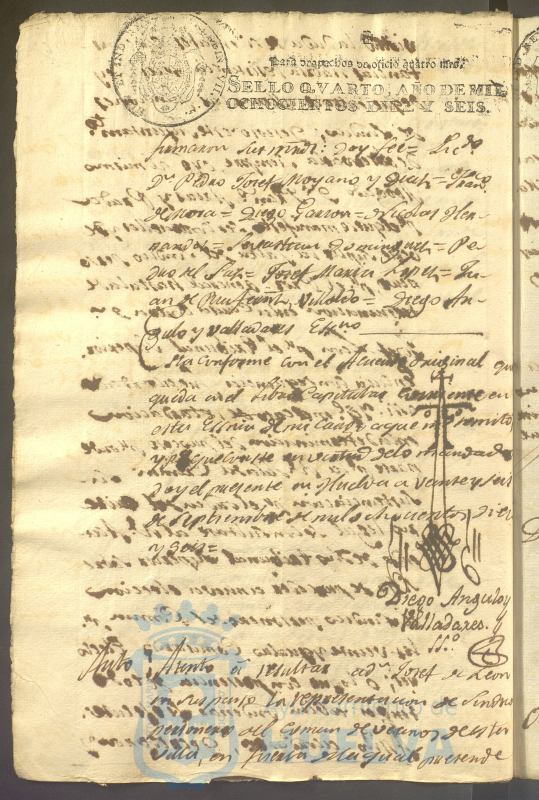 Para despachos de oficio quatro mrs.
SELLO QVARTO, AÑO DE MIL
OCHOCIENTOS DIEZ Y SEIS.
firmaron sus mrds: doy feé = Licdo
Dn Pedro Josef Moyano y Diaz = Franco
de Mora = Diego Garzon = Nicolas Her-
nandez = Sevastian Dominguez = Pe-
dro el Paz = Josef Maria Lopez = Ju-
an de = Diego An-
gulo y Valladares Essno
Es conforme con el Acuerdo original qe
queda en el Libro Capitular Corriente en
esta Essnia de mi Cargo a que me remito
y pa que conste en virtud de lo mandado
doy el presente en Huelva a veinte y seis
de Septiembre de mil ochocientos diez
y seis =
Diego Angulo y
Valladares.
Auto Atento á resultar a dn Josef de Leon
en suspenso la representacion de Sindico
personero del Comun de vecinos de esta
villa, en fuerza de la qual pretende
AYUNTAMIENTO DE
HUELVA